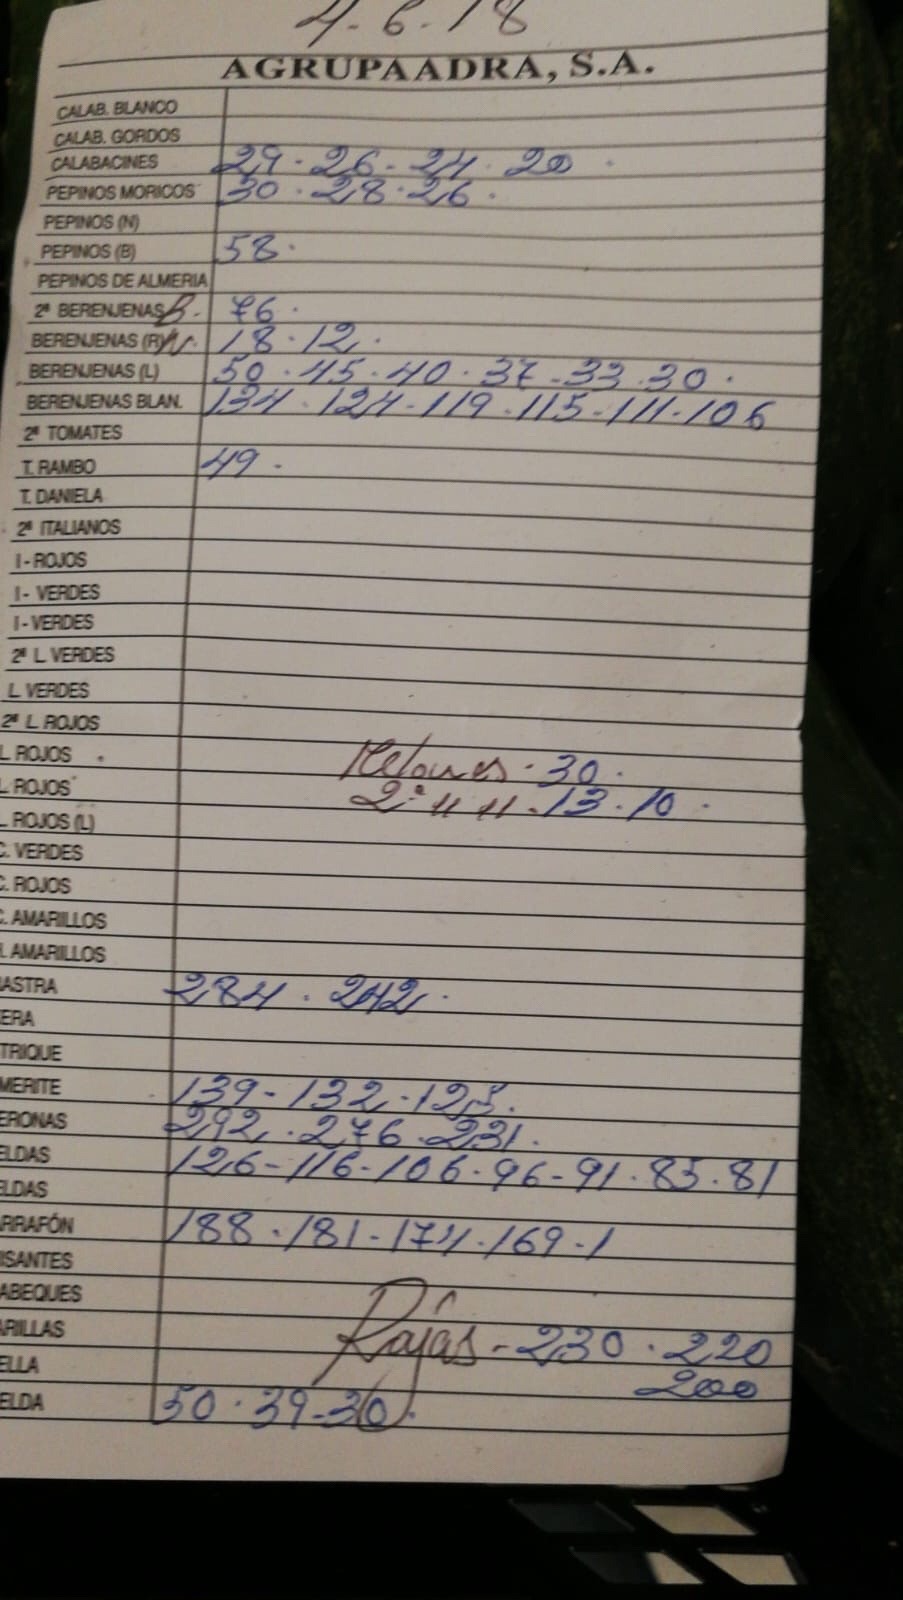 4-6-18
AGRUPAADRA, S.A.
CALAB. BLANCO
CALAB. GORDOS
CALABACINES 29 · 26 - 24 · 20 ·
PEPINOS MORICOS 30 · 28 · 26 ·
PEPINOS (N)
PEPINOS (B) 58 ·
PEPINOS DE ALMERIA
2ª BERENJENAS B - 76 ·
BERENJENAS (R) N · 18 · 12 ·
BERENJENAS (L) 50 · 45 · 40 · 37 - 33 · 30 ·
BERENJENAS BLAN. 134 · 124 - 119 · 115 - 111 · 106
2ª TOMATES
T. RAMBO 49 ·
T. DANELA
2ª ITALIANOS
I - ROJOS
I - VERDES
I - VERDES
2ª L VERDES
L VERDES
2ª L ROJOS
L ROJOS Melones · 30 ·
L ROJOS 2ª 11 11 - 13 · 10 ·
L ROJOS (L)
C. VERDES
C. ROJOS
C. AMARILLOS
AMARILLOS
ASTRA 284 · 242 ·
ERA
TRIQUE
MERITE 139 - 132 · 125 ·
ERONAS 292 · 276 · 231 ·
ELDAS 126 - 116 - 106 · 96 - 91 · 85 · 81
ELDAS
RRAFÓN 188 · 181 - 174 · 169 · 1
ISANTES
ABEQUES
ARILLAS Rajas - 230 · 220
ELLA 200
ELDA 50 · 39 - 30 ·